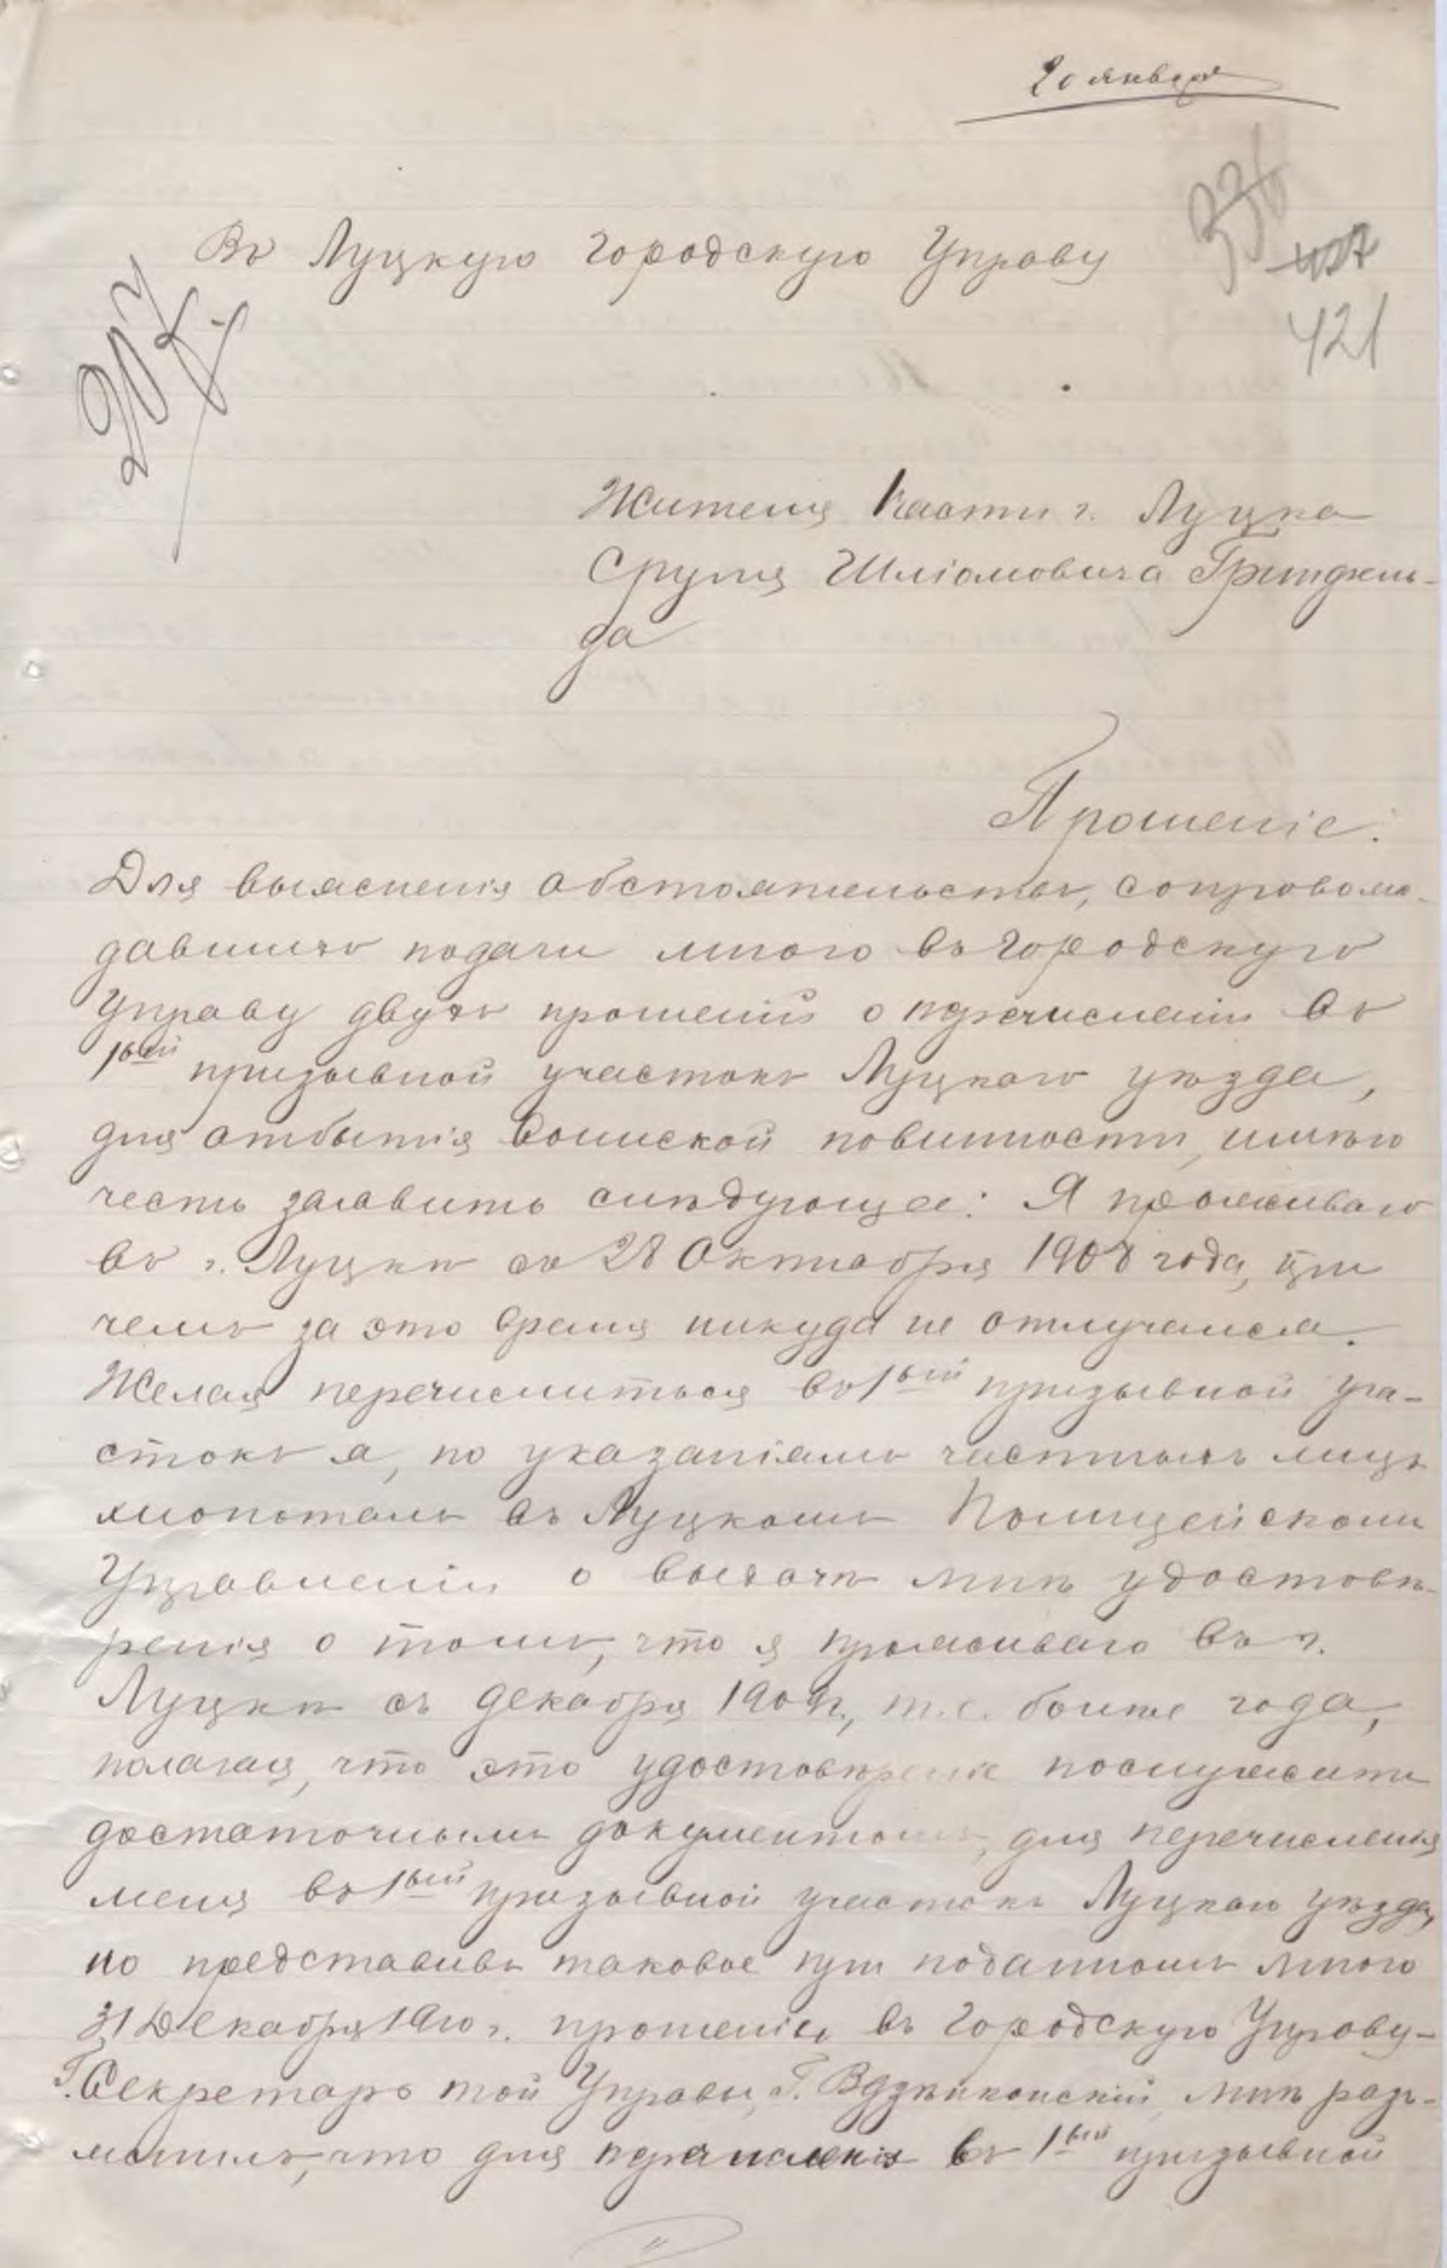 20 января
Въ Луцкую Городскую Управу
336
427
421
207
Жителя части г. Луцка
Сруля Шліомовича Гринфель-
да
Прошеніе.
Для выясненія обстоятельствъ, сопровож-
давшихъ подачи мною въ Городскую
Управу двухъ прошеній о перечисленіи въ
1ый призывной участокъ Луцкаго уѣзда,
для отбытія воинской повинности, имѣю
честь заявить слѣдующее: Я проживаю
въ г. Луцкѣ съ 28 Октября 1908 года, при
чемъ за это время никуда не отлучался.
Желая перечислиться въ 1ый призывной уча-
стокъ я, по указаніямъ частныхъ лицъ
хлопоталъ въ Луцкомъ Полицейскомъ
Управленіи о выдачѣ мнѣ удостовѣ-
ренія о томъ, что я проживаю въ г.
Луцкѣ съ декабря 1909г., т.е. болѣе года,
полагая, что это удостовѣреніе послужитъ
достаточнымъ документомъ, для перечисленія
меня въ 1ый призывной участокъ Луцкаго уѣзда,
но представивъ таковое при поданномъ мною
31 Декабря 1910 г. прошеніи въ Городскую Управу-
Г. Секретарь той Управы, Г. мнѣ разъ-
яснилъ, что для перечисленія въ 1ый призывной